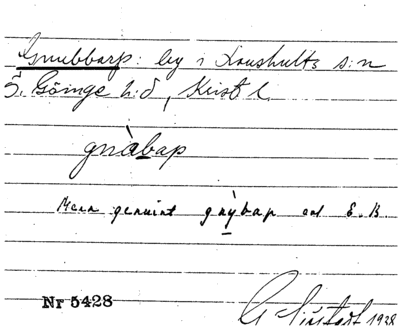 Gnubbarp: by i Loushults s:n
Ö. Göinge h:d, Krist. l.
gnàbap
Mera genuint gnỳbap enl E. B.
Nr 5428
G 1928